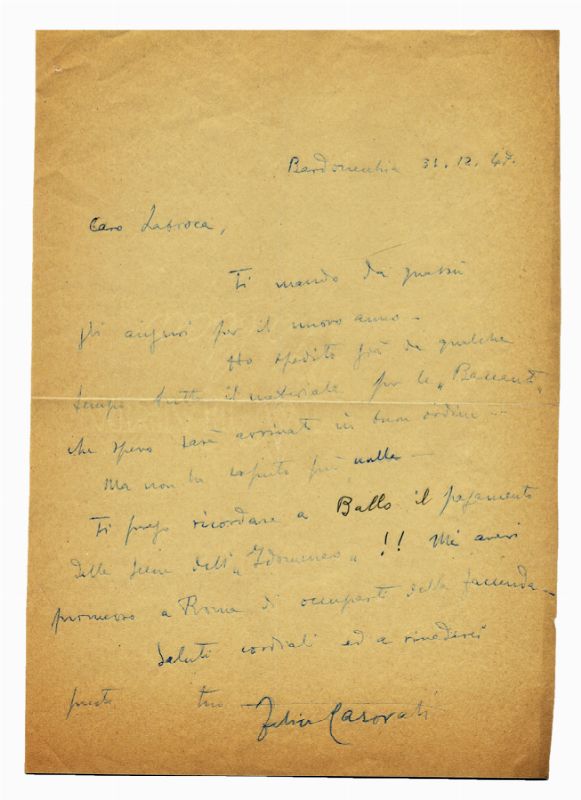 Bardonecchia 31.12.47.
Caro Labroca,
Ti mando da quassù
gli auguri per il nuovo anno -
Ho spedito già da qualche
tempo tutto il materiale per le „Baccanti„
che spero sarà arrivato in buon ordine -
Ma non ho saputo più nulla -
Ti prego ricordare a Ballo il pagamento
delle scene dell'„Idomeneo„ !! Mi avevi
promesso a Roma di occuparti della faccenda -
Saluti cordiali ed a rivederci
presto tuo
Felice Casorati